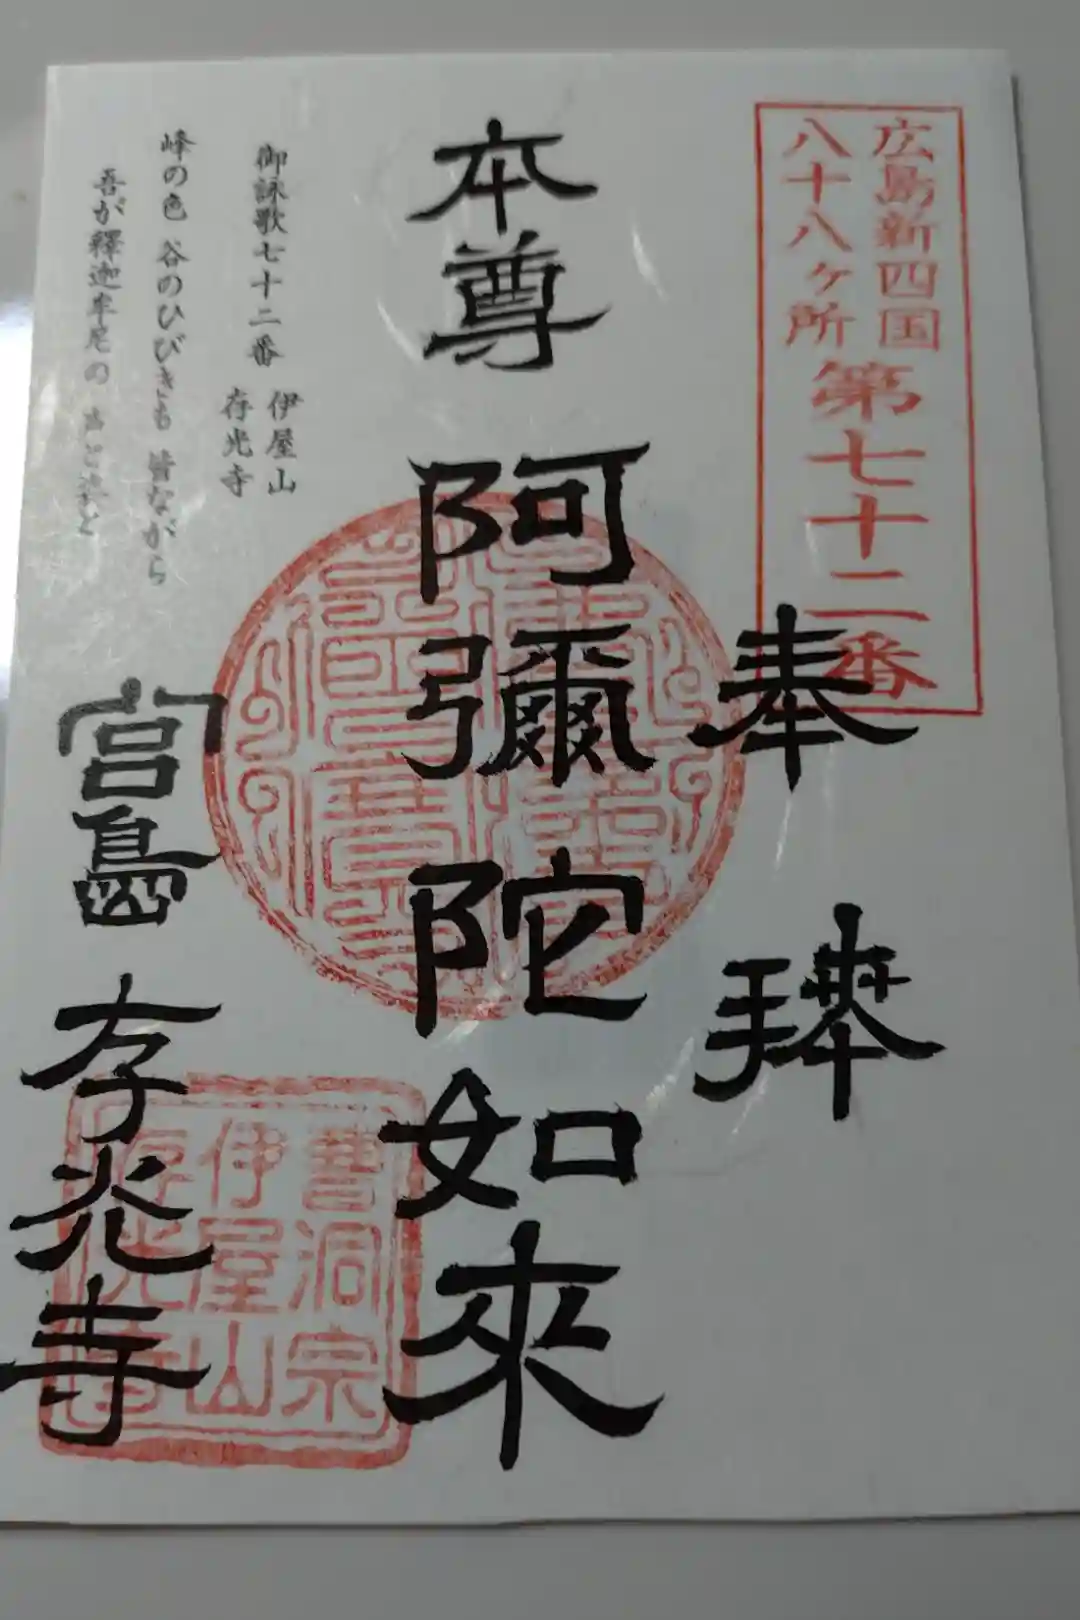 広島新四国
八十八ヶ所
第七十二番
奉拝
本尊 阿彌陀如來
御詠歌七十二番 伊屋山
存光寺
峰の色 谷のひびきも 皆ながら
吾が釋迦牟尼の 声と姿と
宮島 存光寺
曹洞宗
伊屋山
存光寺